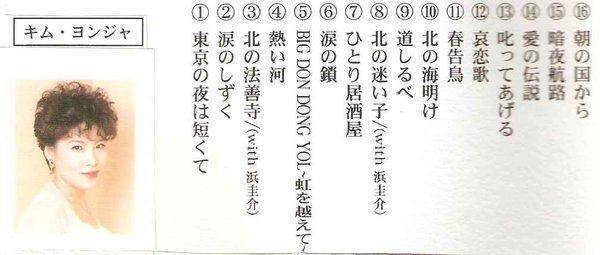 キム・ヨンジャ
①東京の夜は短くて
②涙のしずく
③北の法善寺/(with 浜圭介)
④熱い河
⑤BIG DON DONG YOL~虹を越えて~
⑥涙の鎖
⑦ひとり居酒屋
⑧北の迷い子/(with 浜圭介)
⑨道しるべ
⑩北の海明け
⑪春告鳥
⑫哀恋歌
⑬叱ってあげる
⑭愛の伝説
⑮暗夜航路
⑯朝の国から